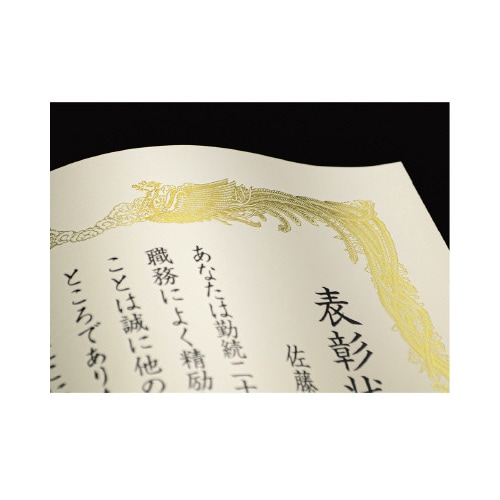 表彰状
佐藤
あなたは勤続二十
職務によく精励
ことは誠に他の
ところであり